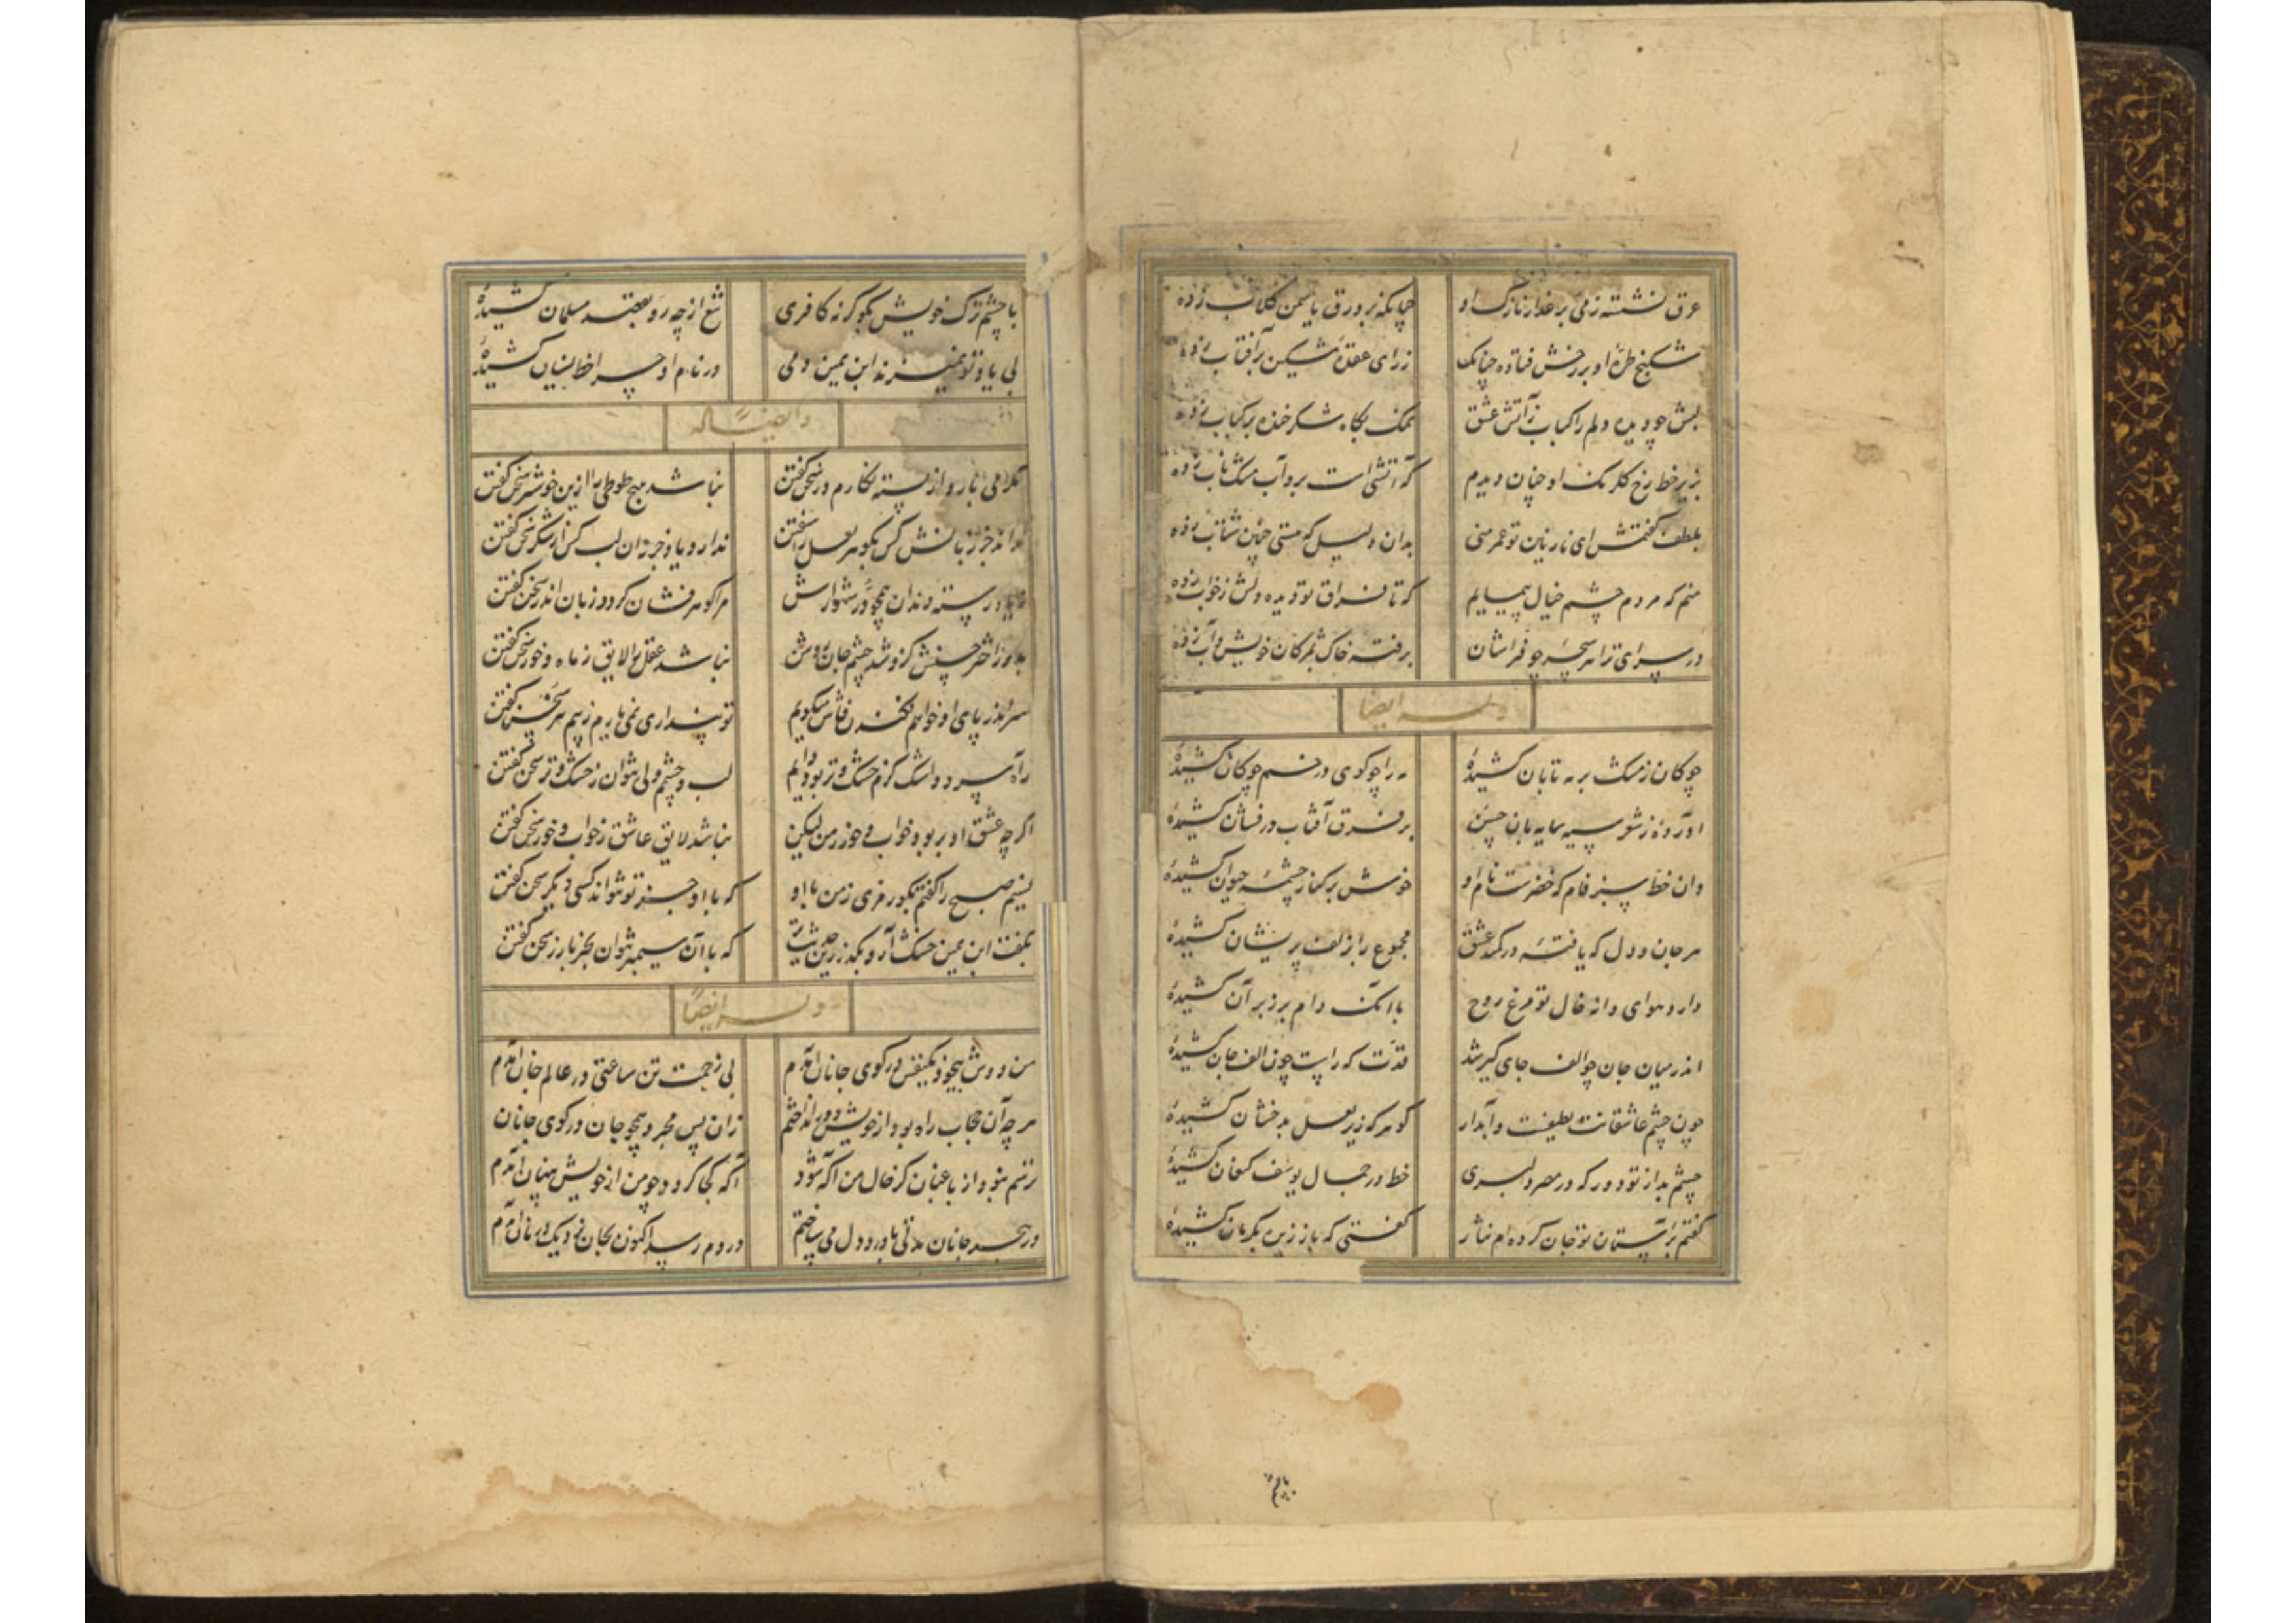 عرق نشسته ز می بر عذار نازک او چنانکه بر ورق یاسمن گلاب زده
شکنج طرّهٔ او بر رخش فتاده چنانک زرای عقدهٔ مشکین بر آفتاب زده
لبش چو دیده دلم را کباب ز آتش عشق نمک بگاه شکر خنده بر کباب زده
بزیر خط رخ گلرنگ او چنان دیدم که آتشی است برو آب مشک ناب زده
بلطف گفتمش ای نازنین تو عمر منی بدان دلیل که هستی چنین شتاب زده
منم که مردم چشم خیال پیمایم که تا فراق تو دیده دلش ز خواب زده
در سرای ترا هر سحر چو فراشان برفته خاک بمژگان خویش و آب زده
وله ایضا
چوگان ز مشک بر مه تابان کشیدهٔ مه را چو گوی در خم چوگان کشیدهٔ
آوردهٔ ز شعر سیه سایه‌بان حسن بر فرق آفتاب درفشان کشیدهٔ
وان خط سبز فام که خضرست نام او خوش بر کنار چشمهٔ حیوان کشیدهٔ
هر جان و دل که یافتهٔ در کمند عشق مجموع را بزلف پریشان کشیدهٔ
دارد هوای دانه خال تو مرغ روح با آنک دام بر زبر آن کشیدهٔ
اندر میان جان چو الف جای گیر شد قدّت که راست چون الف جان کشیدهٔ
چون چشم عاشقانت لطیفست و آبدار گوهر که زیر لعل بدخشان کشیدهٔ
چشم بد از تو دور که در مصر دلبری خط در جمال یوسف کنعان کشیدهٔ
گفتم بر آستان تو جان کرده‌ام نثار گفتی که باز زیره بکرمان کشیدهٔ
با چشم
با چشم ترک خویش بگو گر نه کافری تیغ از چه رو بقصد مسلمان کشیدهٔ
بی یاد تو نمیزند ابن یمین دمی در نام او چرا خط نسیان کشیدهٔ
و ایضا له
شکر می‌بارد از پسته نگارم در سخن گفتن نباشد هیچ طوطی را ازین خوشتر سخن گفتن
نداند جز زبانش کس بگوهر لعل را سفتن ندارد یاد جز زان لب کس از شکر سخن گفتن
رسته دندان همچو در شهوارش مرا گوهرفشان گردد زبان اندر سخن گفتن
اختر حسنش کزو شد چشم جان روشن نباشد عقل را لایق ز ماه و خور سخن گفتن
سر اندر پای او خواهم فکندن فاش میگویم تو پنداری نمی‌یارم ز بیم سر سخن گفتن
ز آه سرد و اشک گرم خشک و تر بود دایم لب و چشم ولی نتوان ز خشک و تر سخن گفتن
اگر چه عشق او بربود خواب و خور ز من لیکن نباشد لایق عاشق ز خواب و خور سخن گفتن
نسیم صبح را گفتم بگو رمزی ز من با او که با او جز تو نتواند کسی دیگر سخن گفتن
بگفت ابن یمین خشک آر و بگذر زین حدیث که با آن سیمبر نتوان بجز با زر سخن گفتن
وله ایضاً
من دوش بیخود یکنفس در کوی جانان آمدم بی زحمت تن ساعتی در عالم جان آمدم
هر چه آن حجاب راه بود از خویش دور انداختم زان پس مجرد همچو جان در کوی جانان آمدم
ترسم نبود از باغبان کز حال من آگه شود آگه کجا گردد چو من از خویش پنهان آمدم
در هجر جانان مدتی با درد دل می‌ساختم دردم رسید اکنون بجان نزدیک درمان آمدم